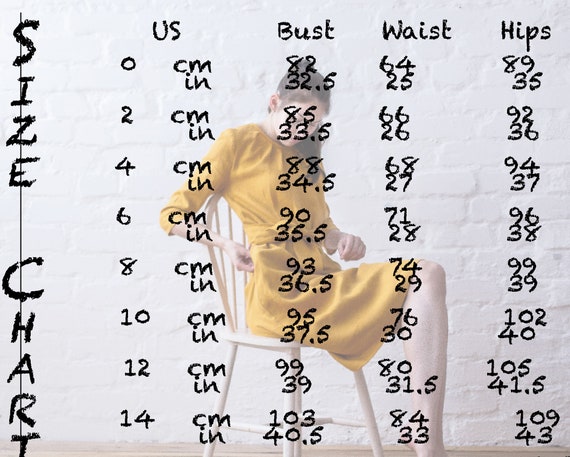 Size Chart
US Bust Waist Hips
0 cm 82 64 89
in 32.5 25 35
2 cm 85 66 92
in 33.5 26 36
4 cm 88 68 94
in 34.5 27 37
6 cm 90 71 96
in 35.5 28 38
8 cm 93 74 99
in 36.5 29 39
10 cm 95 76 102
in 37.5 30 40
12 cm 99 80 105
in 39 31.5 41.5
14 cm 103 84 109
in 40.5 33 43